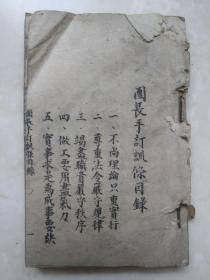 團長手訂訓條目錄
一、不尚理論只重實行
二、尊重法令嚴守規律
三、竭盡職責嚴守秩序
四、做工要用盡氣力
五、實事求是為成事要訣
團長手訂訓條目錄
一